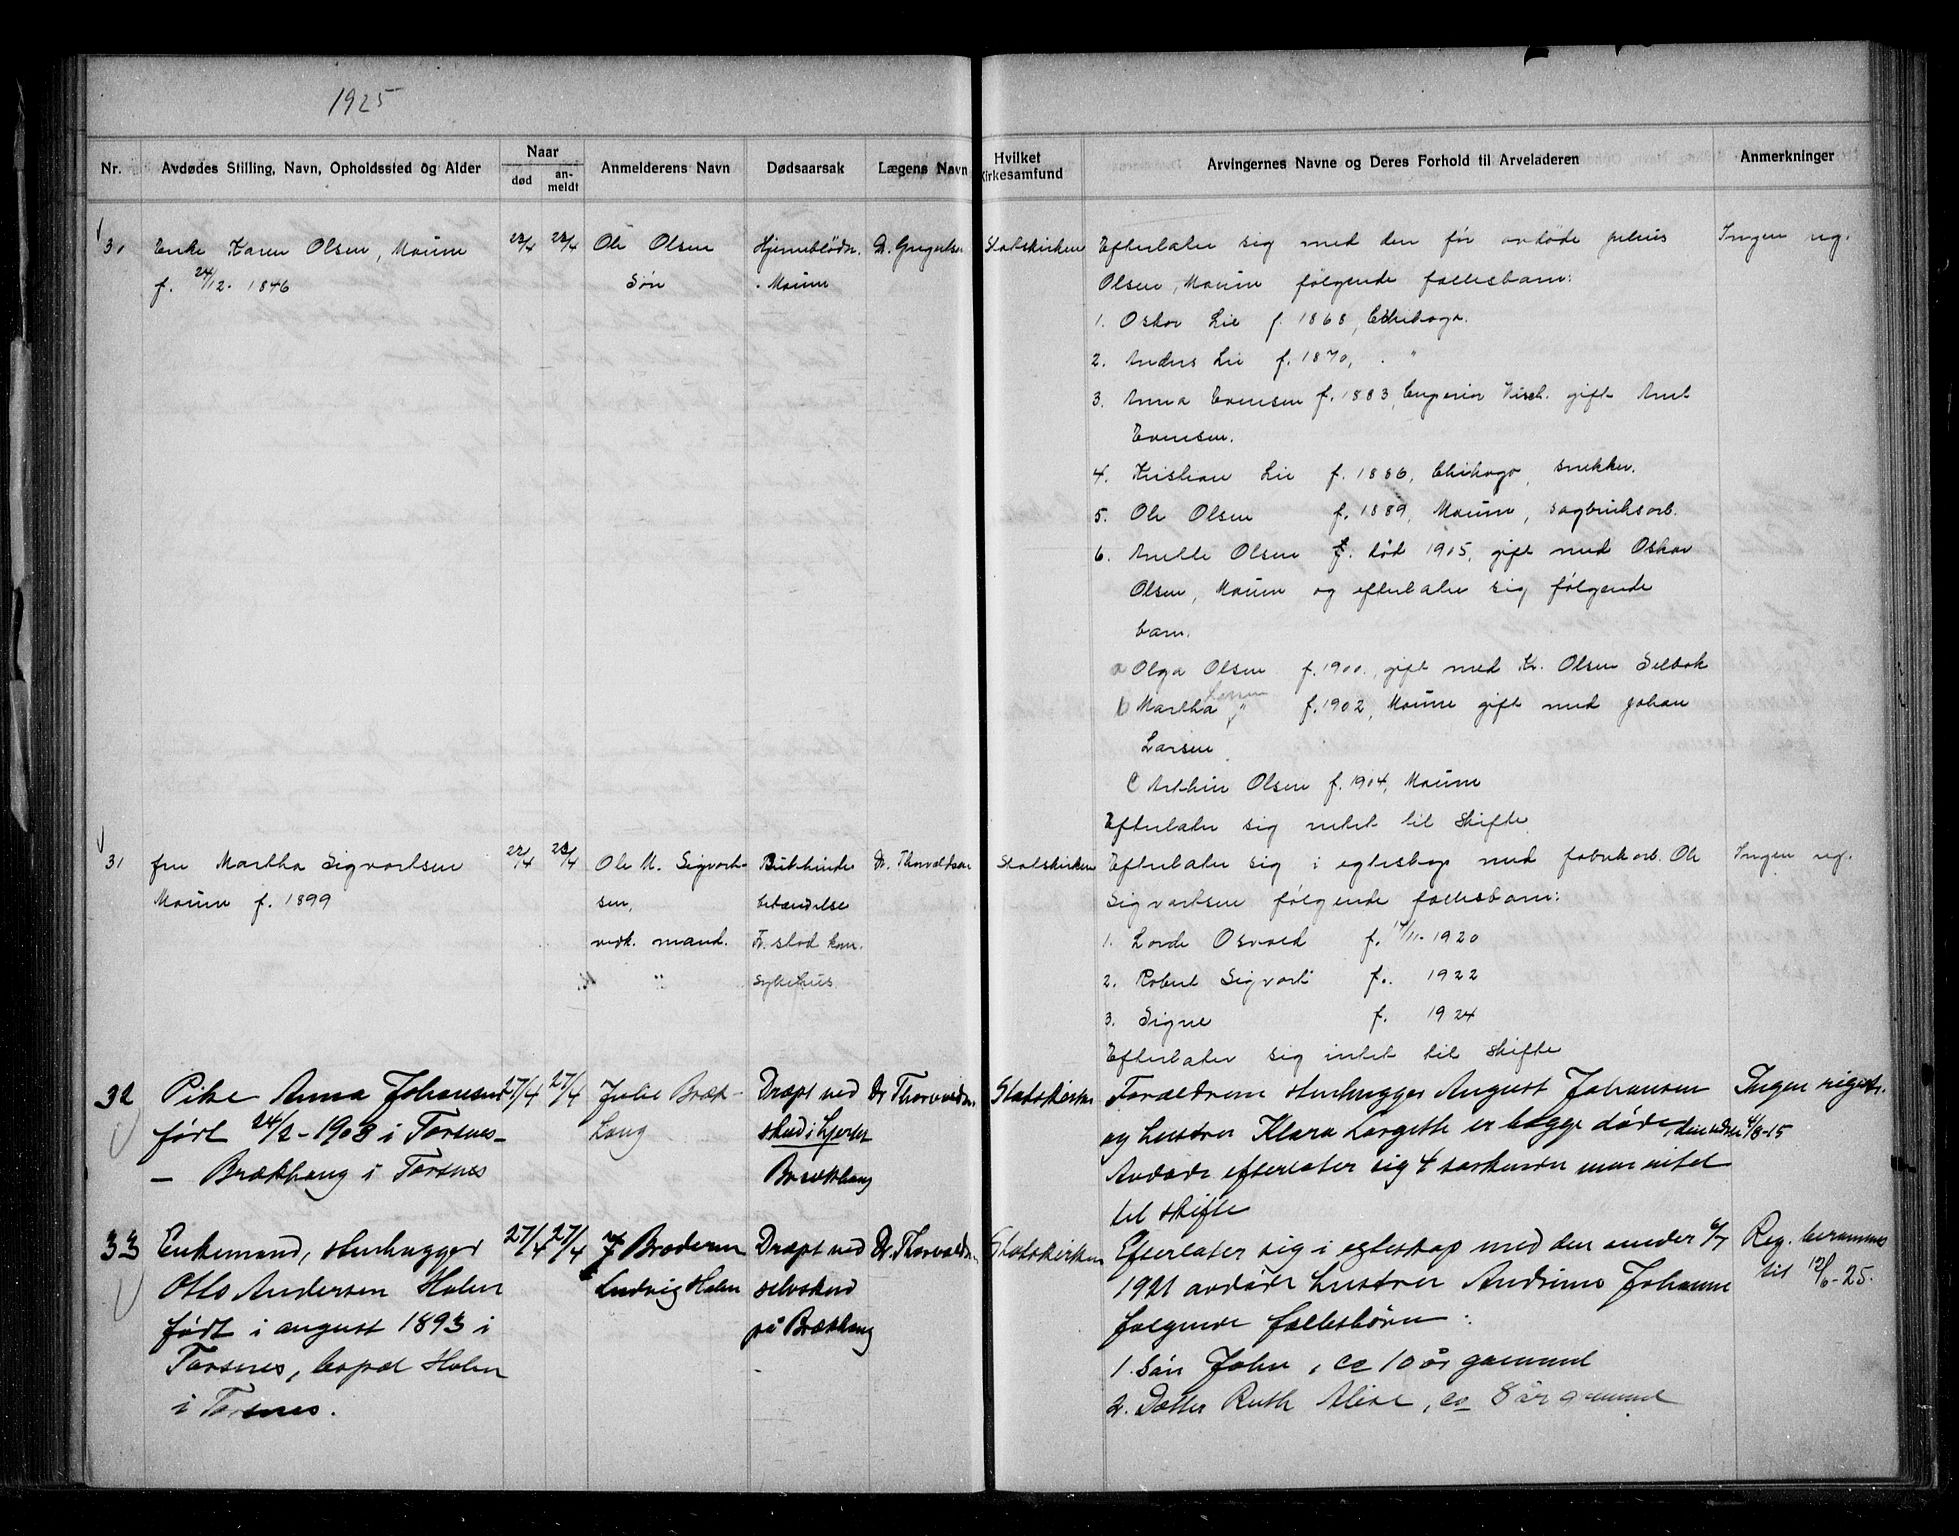 1925
Nr.
Avdødes Stilling, Navn, Opholdssted og Alder
Naar
død
an-
meldt
Anmelderens Navn
Dødsaarsak
Lægens Navn
Hvilket
Kirkesamfund
Arvingernes Navne og Deres Forhold til Arveladeren
Anmerkninger
30
Enke Karen Olsen, Moum
f. 24/12. 1846
23/4
Ole Olsen
Søn
Hjerneblødn.
Moum
Dr. Gregertsen
Statskirken
Efterlater sig med den før avdøde Julius
Olsen, Moum følgende fellesbarn:
1. Oskar Lie f. 1868, Chikago.
2. Anders Lie f. 1870, "
3. Anna Evensen f. 1883, gift Arnt
Evensen.
4. Kristian Lie f. 1886, Chikago, snekker.
5. Ole Olsen f. 1889, Moum, sagbruksarb.
6. Olsen død 1905, gift med Oskar
Olsen, Moum og efterlater sig følgende
barn.
a Olga Olsen f. 1900, gift med Kr. Olsen Selbak
b Martha Larsen " f. 1902, Moum gift med Johan
Larsen
c Arthur Olsen f. 1904, Moum
Efterlater sig intet til skifte
Ingen reg.
31
fru Martha Sigvartsen
Moum f. 1899
22/4
23/4
Ole M. Sigvart-
sen,
vedk. mand.
"
Bukhinde
betændelse
Fr.stad kom.
sykehus
Dr. Thorvaldsen
Statskirken
Efterlater sig i egteskap med fabrikarb. Ole
Sigvartsen følgende fellesbarn:
1. Osvald f. 17/11-1920
2. Robert Sigvart f. 1922
3. Signe f. 1924
Efterlater sig intet til skifte
Ingen reg.
32
Pike Anna Johansen
født 24/2-1903 i Torsnes
- Brækhaug i Torsnes
27/4
27/4
Julie Bræk-
haug
Dræpt ved
skud i hjertet
Brækhaug
Dr Thorvaldsen
Statskirken
Forældrene stenhugger August Johansen
og hustru Klara Lorgette er begge døde, den sidste 4/8-15
Avdøde efterlater sig 4 søskende men intet
til skifte
Ingen registr.
33
Enkemand, stenhugger
Otto Andersen Holen
født i august 1893 i
Torsnes, bopæl Holen
i Torsnes.
27/4
27/4
Broderen
Ludvig Holen
Dræpt ved
selvskud
på Brækhaug
Dr. Thorvaldsen
Statskirken
Efterlater sig i egteskap med den under 6/7
1921 avdøde hustru Andrine Johanne
følgende fellesbørn:
1. Søn John, ca 10 år gammel
2. Datter Ruth Alise, ca 8 år gammel
Reg. berammes
til 12/6-25.